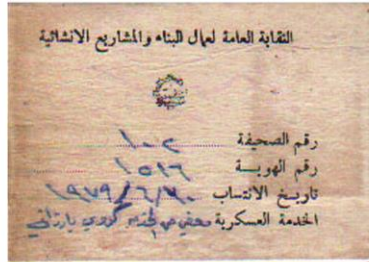 النقابة العامة لعمال البناء والمشاريع الانشائية
رقم الصحيفة ١٠٢
رقم الهوية ١٥١٦
تاريخ الانتساب ١٩٧٩/٦/٢٠
الخدمة العسكرية معفي من الخدمه كردي بارزاني